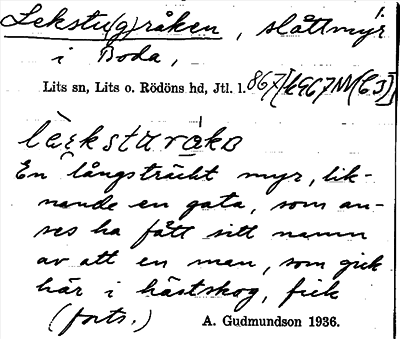 1.
Lekstu(g)råken, slåttmyr
i Boda,
Lits sn, Lits o. Rödöns hd, Jtl. l.
En långsträckt myr, lik-
nande en gata, som an-
ses ha fått sitt namn
av att en man, som gick
här i hästskog, fick
(forts.)
A. Gudmundson 1936.